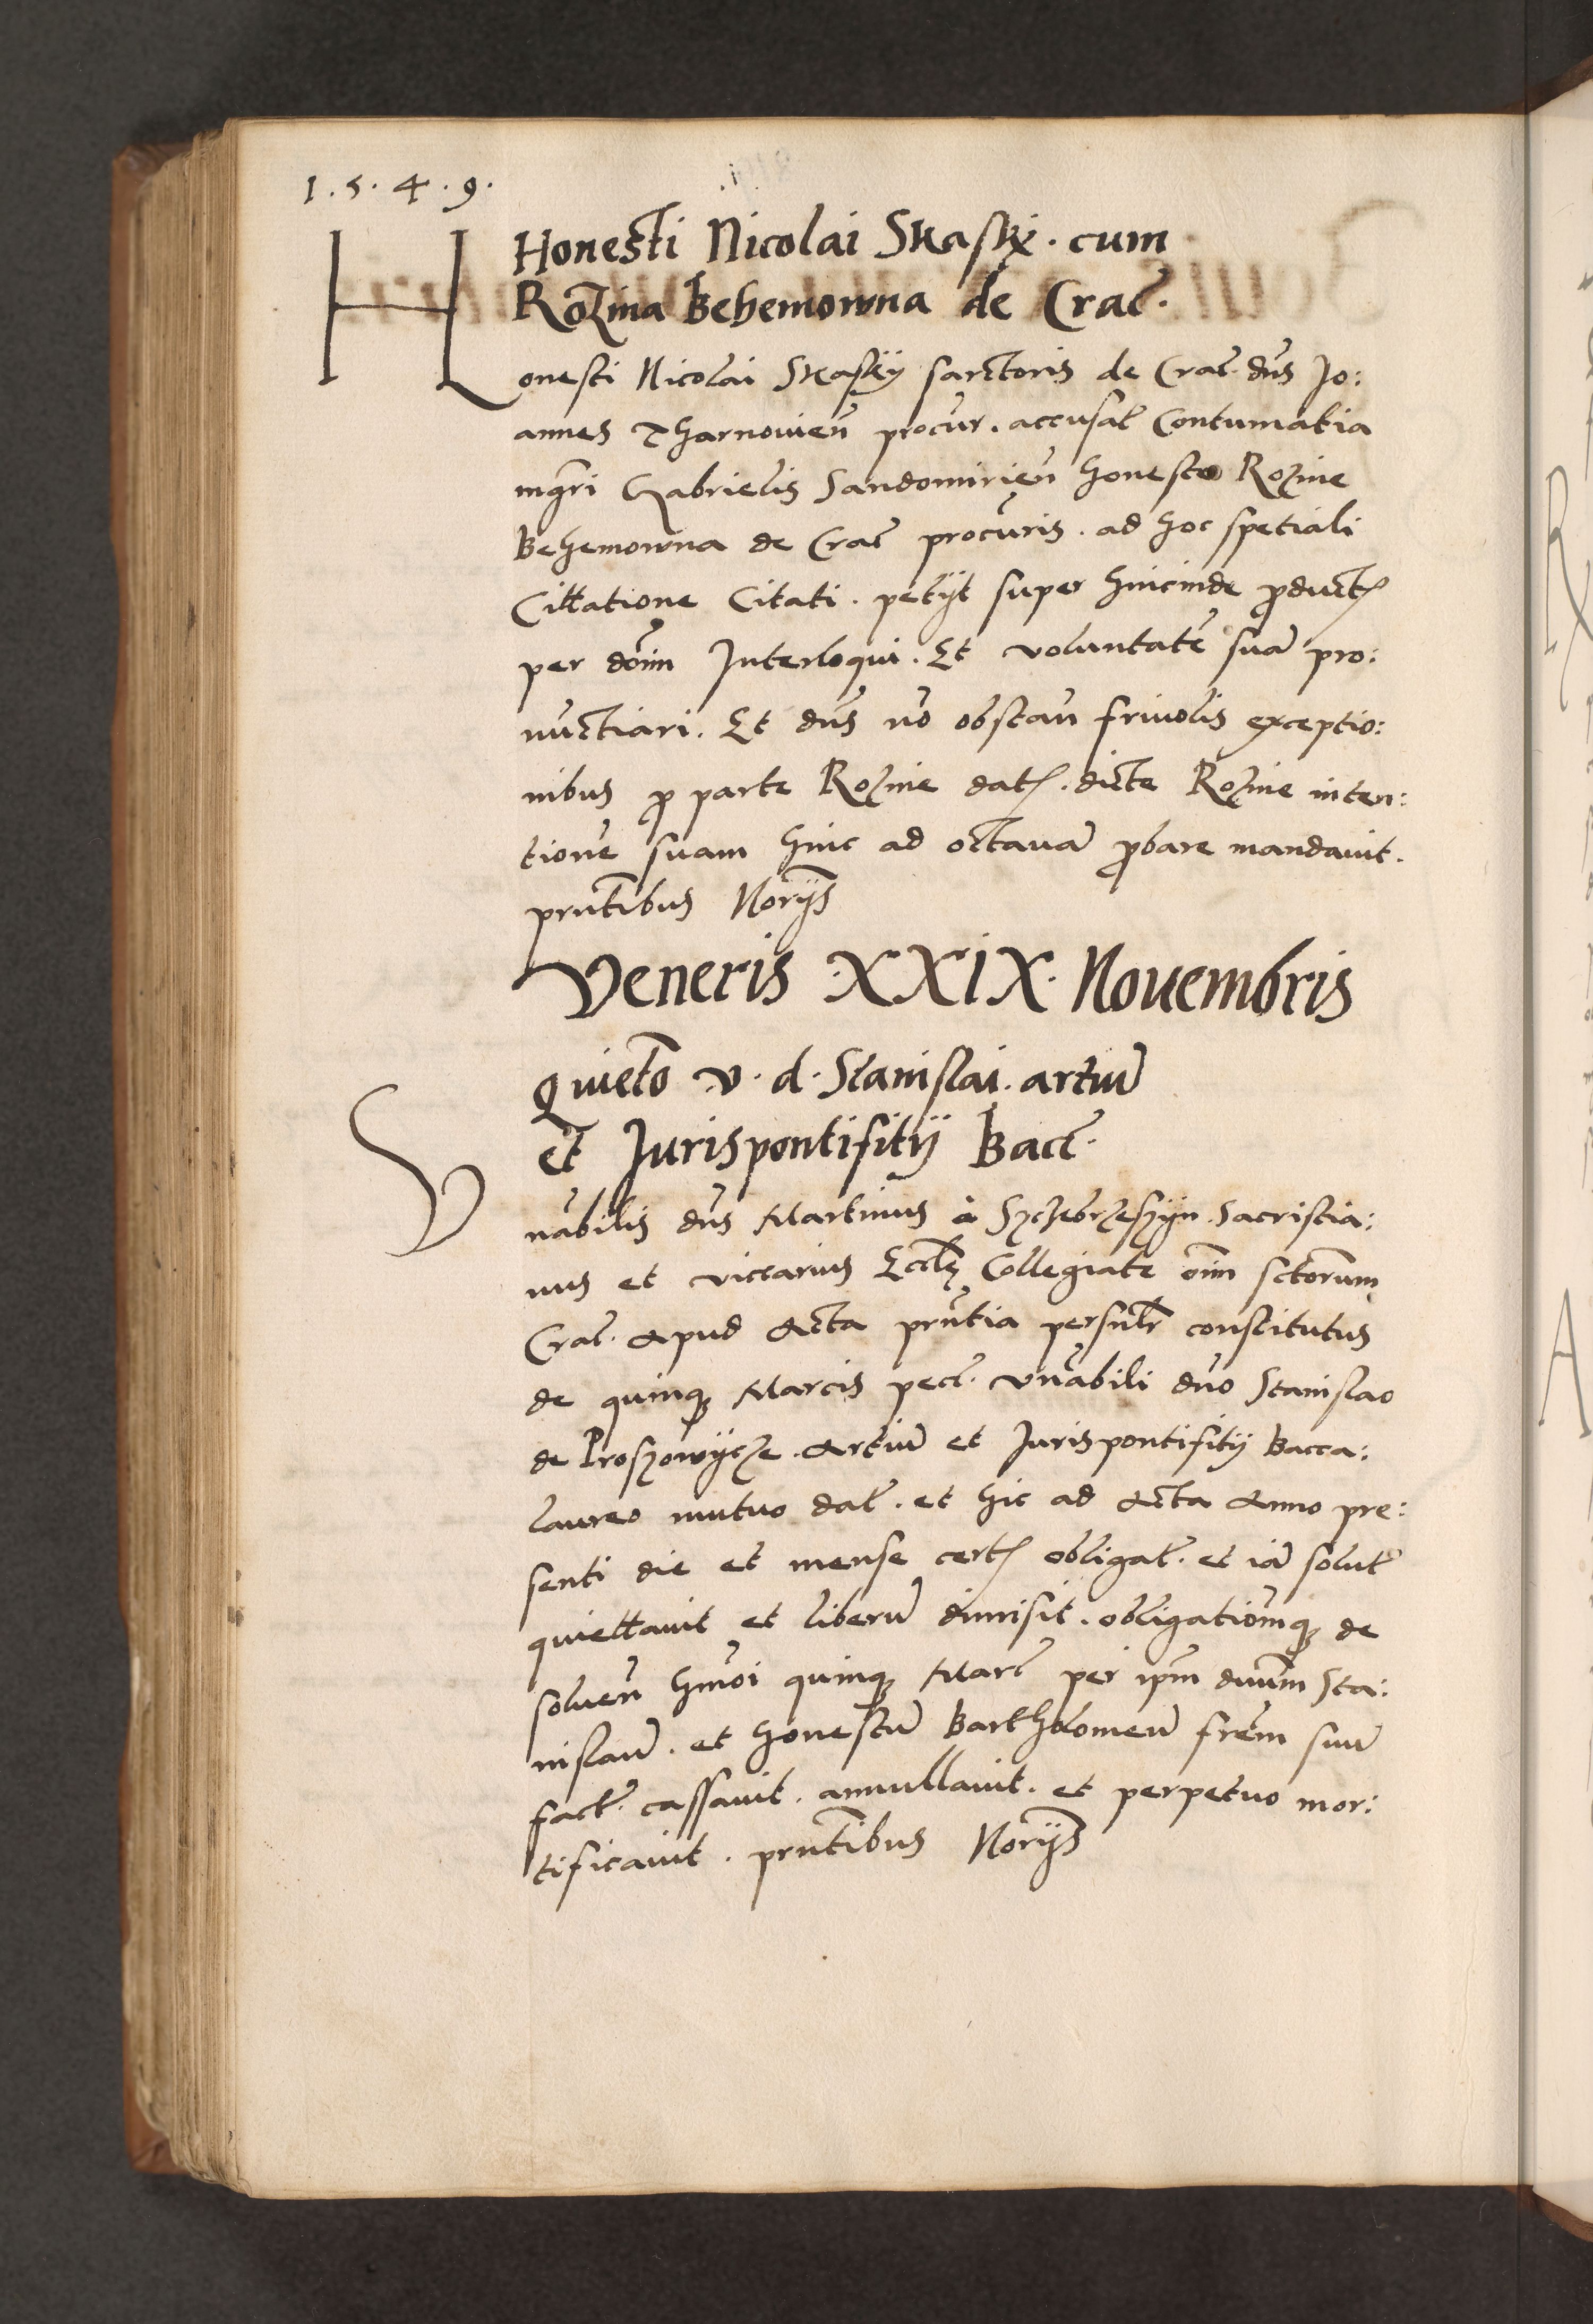 1.5.4.9.
Honesti Nicolai Skasky. cum
Rozina Behemowna de Crac̃.
Honesti Nicolai Skasky sartoris de Crac̃. dn̄s Jo:
annes Tharnowien̄ procur. accusat̃ Contumatia
mgr̄i Gabrielis Sandomirien̄ honeste Rozine
Behemowna de Crac̃ procuris. ad hoc spetiali
Cittatione Citati. petijt super hincinde ꝓductꝭ
per dōim Interloqui. Et voluntatē suā pro:
nuctiari. Et dn̄s nō obstan̄ friuolis exceptio:
nibus ꝓ parte Rozine datꝭ. dicte Rozine inten:
tionē suam hinc ad octauā ꝓbare mandauit.
prn̄tibus Norijs̃
Veneris .XXIX. Nouembris
Quietõ v. d. Stanislai. artiū
et Jurispontifitij Bacc̃.
Vn̄abilis dn̄s Martinus à Sczebrzeszyn. Sacristia:
nus et viccarius Eccl̃ę Collegiate oīm sctorum
Crac̃. apud acta prn̄tia persnl̃r constitutus
de quinqꝫ Marcis pecc̃. vn̄abili dn̄o Stanislao
de Proszowycze. artiū et Jurispontifitij Bacca:
laureo mutuo dat̃. et hic ad acta anno pre:
senti die et mense certꝭ obligat̃. et iā solut̃
quiettauit et liberū dimisit. obligationēmqꝫ de
soluen̄ hmōi quinqꝫ Marc̃ per ip̄m dn̄um Sta:
nislaū. et honestū Bartholomeū frēm suū
fact̃. cassauit. annullauit. et perpetuo mor:
tificauit. prn̄tibus Norijs̃